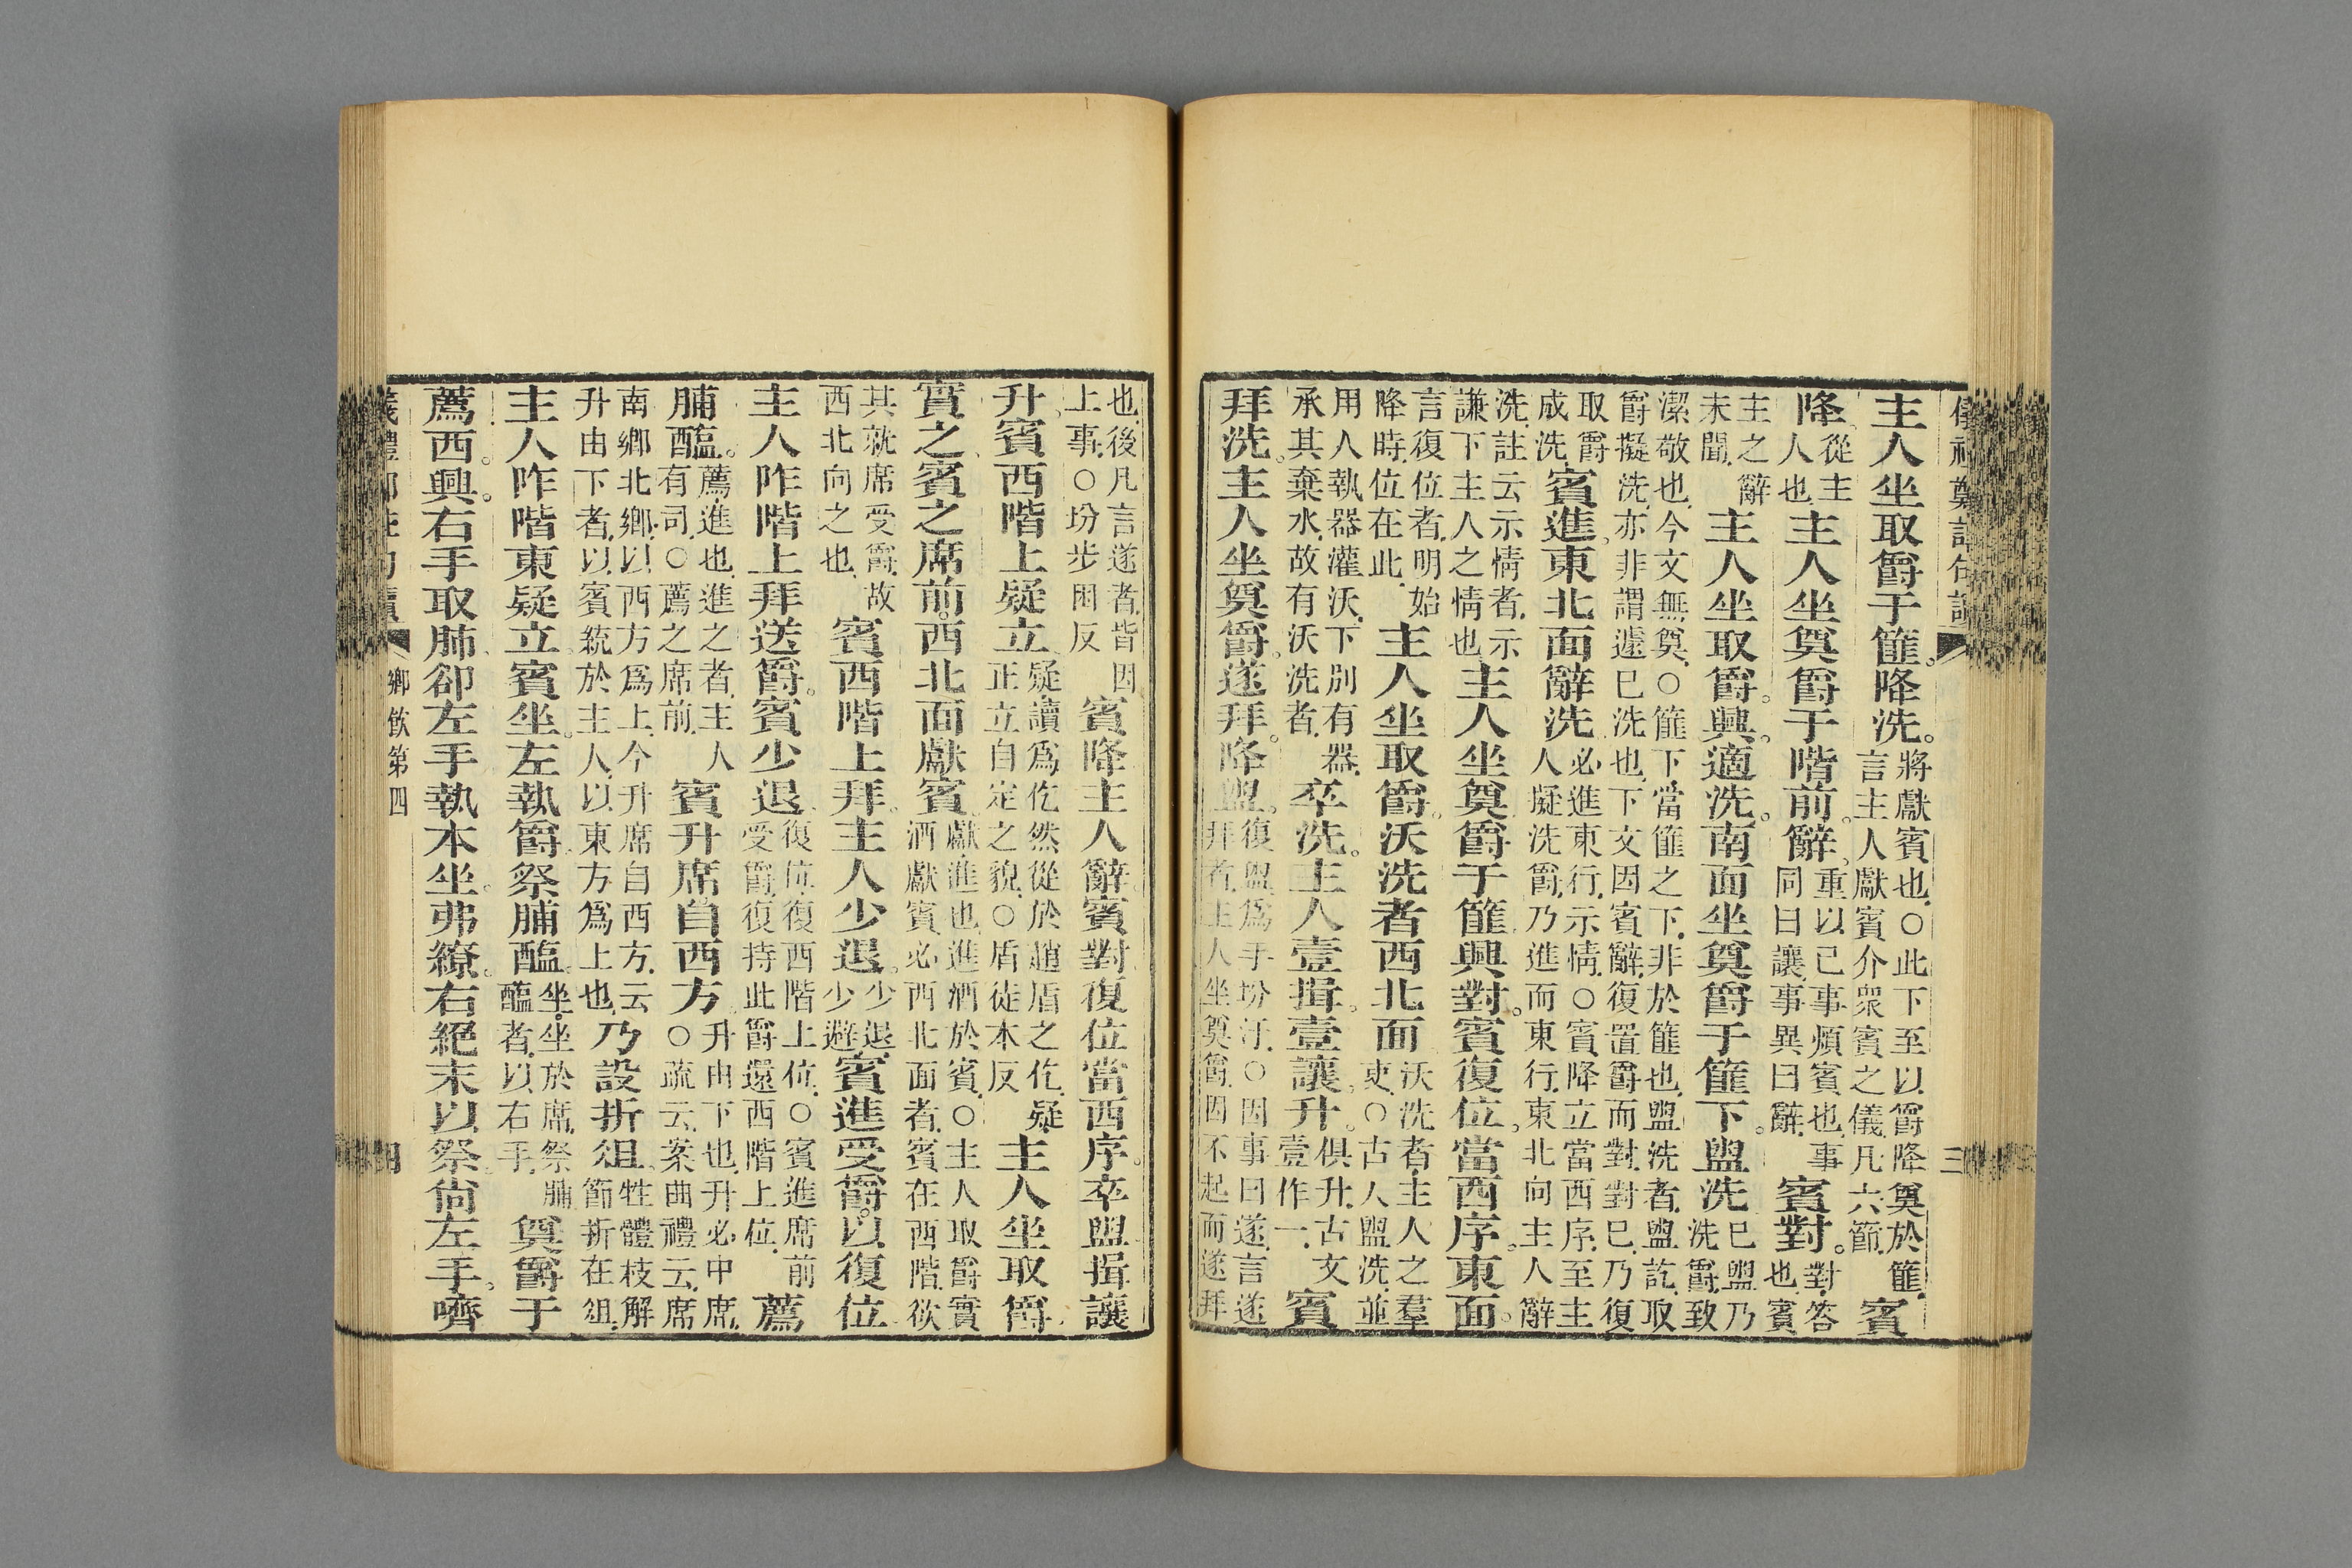 儀禮鄭註句讀
三
主人坐取爵于篚降洗。將獻賓也○此下至以爵降奠於篚言主人獻賓介眾賓之儀凡六節賓
降從主人也主人坐奠爵于階前辭重以己事煩賓也事同曰讓事異曰辭賓對。對答也賓
主之辭未聞主人坐取爵興。適洗。南面坐奠爵于篚下。盥洗已盥乃洗爵致
潔敬也今文無奠○篚下當篚之下非於篚也盥洗者盥訖取爵擬洗亦非謂遽已洗也下文因賓辭復置爵而對對已乃復
取爵成洗賓進。東北面辭洗必進東行示情○賓降立當西序至主人擬洗爵乃進而東行東北向主人辭
洗註云示情者示謙下主人之情也主人坐奠爵于篚興對。賓復位當西序。東面。
言復位者明始降時位在此主人坐取爵。沃洗者西北面沃洗者主人之羣吏○古人盥洗並
用人執器灌沃下別有器承其棄水故有沃洗者卒洗。主人壹揖。壹讓。升。俱升古文壹作一賓
拜洗。主人坐奠爵。遂拜。降盥。復盥為手坋汙○因事曰遂言遂拜者主人坐奠爵因不起而遂拜
也後凡言遂者皆因上事○坋步困反賓降主人辭。賓對復位當西序。卒盥揖讓
升。賓西階上疑立。疑讀為仡然從於趙盾之仡疑正立自定之貌○盾徒本反主人坐取爵
實之賓之席前。西北面獻賓。獻進也進酒於賓○主人取爵實酒獻賓必西北面者賓在西階欲
其就席受爵故西北向之也賓西階上拜。主人少退。少退少避賓進受爵。以復位
主人阼階上拜送爵。賓少退復位復西階上位○賓進席前受爵復持此爵還西階上位薦
脯醢。薦進也進之者主人有司○薦之席前賓升席自西方升由下也升必中席○疏云案曲禮云席
南鄉北鄉以西方為上今升席自西方云升由下者以賓統於主人以東方為上也乃設折俎。牲體枝解節折在俎
主人阼階東疑立。賓坐。左執爵祭脯醢。坐坐於席祭脯醢者以右手奠爵于
薦西。興。右手取肺卻左手執本坐。弗繚。右絕末以祭。尙左手。嚌
儀禮鄭註句讀
鄉飲第四
四